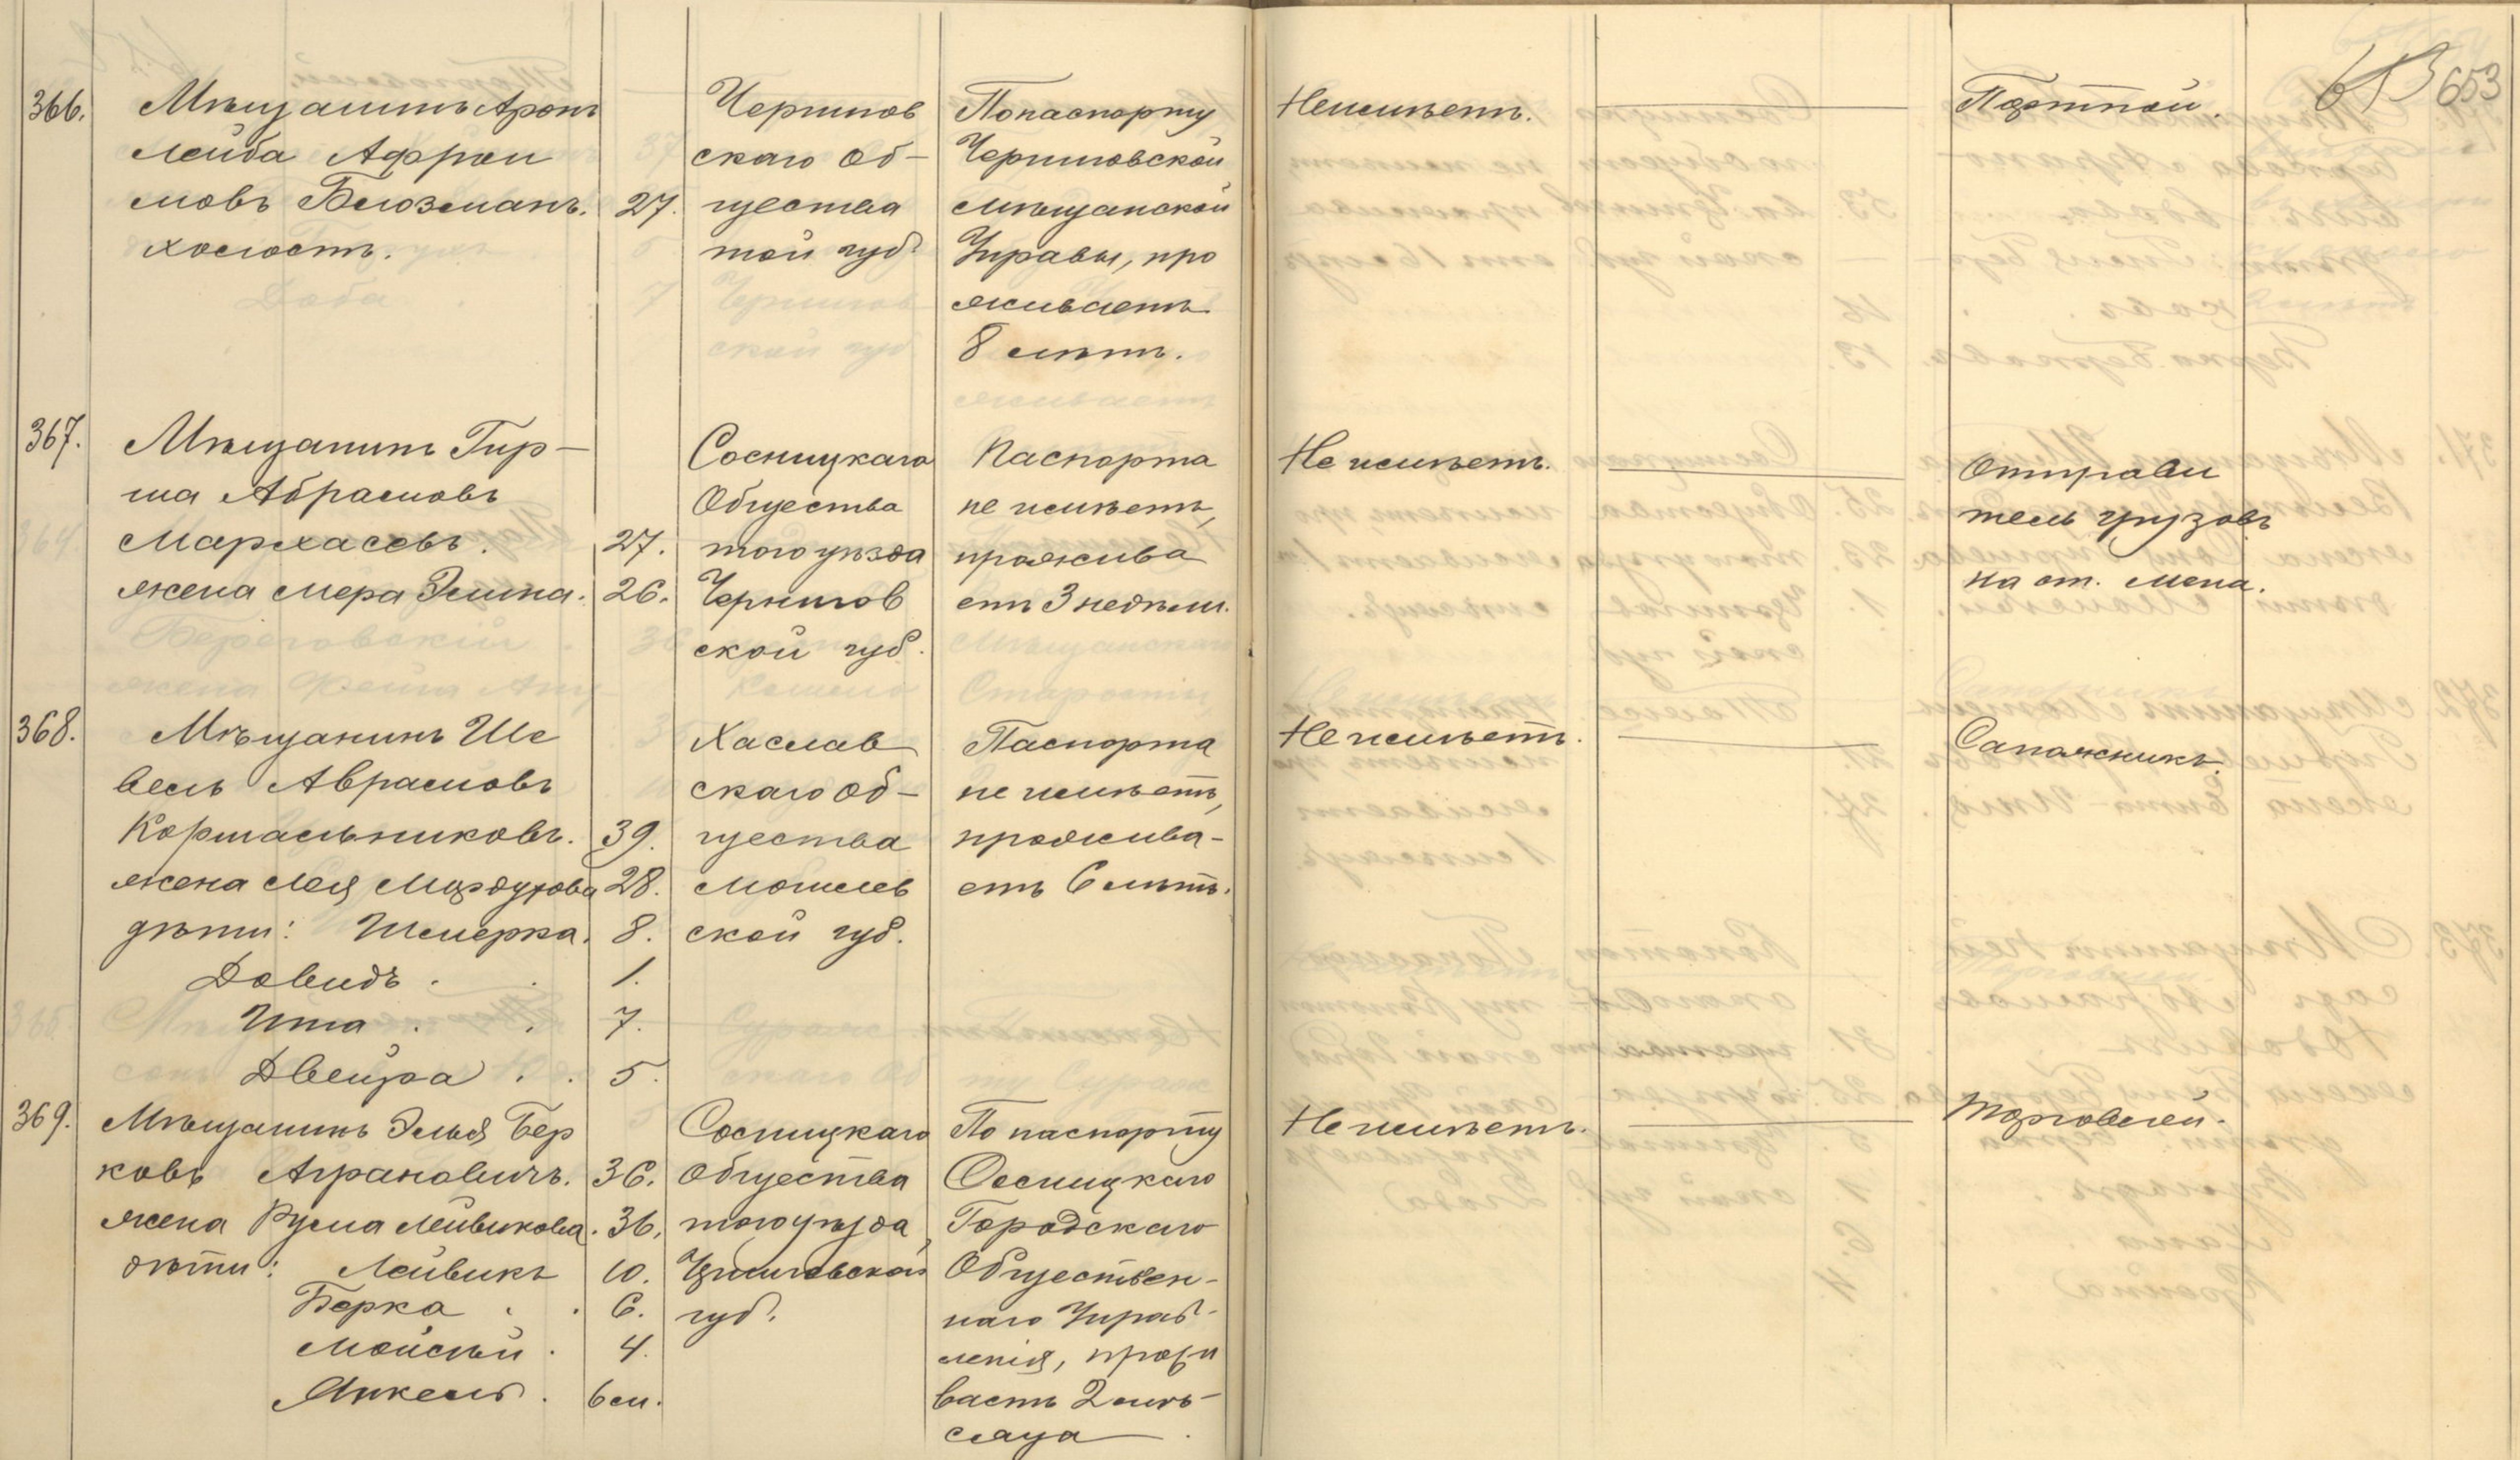 653 653
366. Мѣщанинъ Аронъ
Лейба Афрои
мовъ Блюзманъ. 27.
холостъ.
Чернигов
скаго Об-
щества
той губ.
По паспорту
Черниговской
Мѣщанской
Управы, про
живаетъ
8 лѣтъ.
Неимѣетъ.
Портной.
367. Мѣщанинъ Гир-
ша Абрамовъ
Мархасевъ. 27.
жена Мера Элина. 26.
Сосницкаго
Общества
того уѣзда
Чернигов
ской губ.
Паспорта
не имѣетъ,
прожива
етъ 3 недѣли.
Не имѣетъ.
Отправи
тель грузовъ
на ст. Мена.
368. Мѣщанинъ Ше
вель Аврамовъ
Кормальниковъ. 39.
жена Лея Мордухова 28.
дѣти: Шмерка. 8.
Довидъ. 1.
Ита. 7.
Двейра. 5.
Хаслав
скаго Об-
щества
Могилев
ской губ.
Паспорта
не имѣетъ,
прожива-
етъ 6 лѣтъ.
Не имѣетъ.
Сапожникъ.
369. Мѣщанинъ Элья Бер
ковъ Аграновичъ. 36.
жена Рума Лейвикова. 36.
дѣти: Лейвикъ 10.
Берка. 6.
Мойсѣй. 4.
Янкель. 6 м.
Сосницкаго
Общества
того уѣзда,
Черниговской
губ.
По паспорту
Сосницкаго
Городскаго
Обществен-
наго Управ-
ленія, прожи
ваетъ 2 мѣ-
сяца.
Не имѣетъ.
Торговлей.